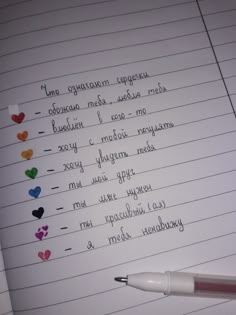 Что означают сердечки
- обожаю тебя, люблю тебя
- влюблён в кого-то
- хочу с тобой погулять
- хочу увидеть тебя
- ты мой друг
- ты мне нужен
- ты красивый (ая)
- я тебя ненавижу